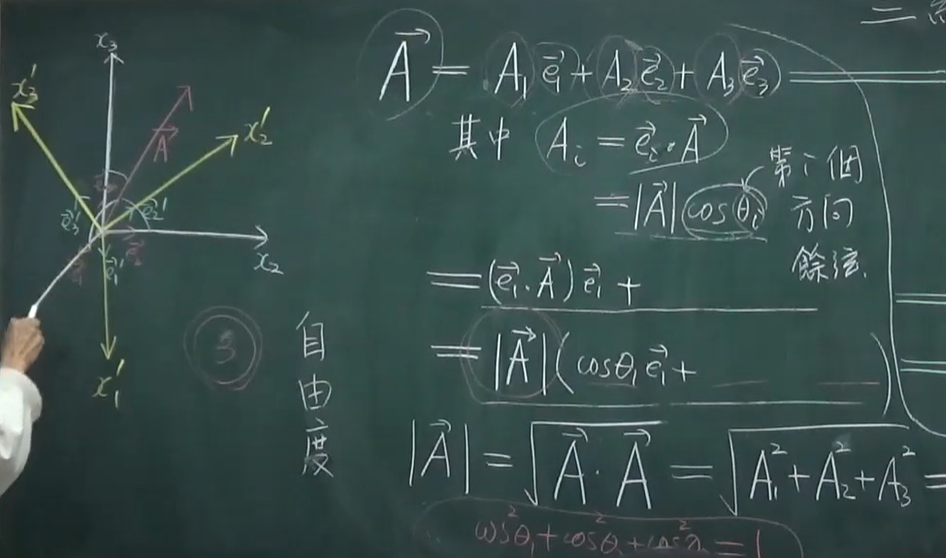 x₃
x₃′
A⃗
x₂′
e⃗₃′
e⃗₂′
e⃗₁′
x₂
x₁′
3
自由度
二
A⃗ = A₁e⃗₁ + A₂e⃗₂ + A₃e⃗₃
其中 Aᵢ = e⃗ᵢ · A⃗
= |A⃗| cosθᵢ
第i個
方向
餘弦
= (e⃗₁ · A⃗)e⃗₁ +
= |A⃗|(cosθ₁e⃗₁ + )
|A⃗| = √A⃗ · A⃗ = √A₁² + A₂² + A₃² =
cos²θ₁ + cos²θ₂ + cos² = 1